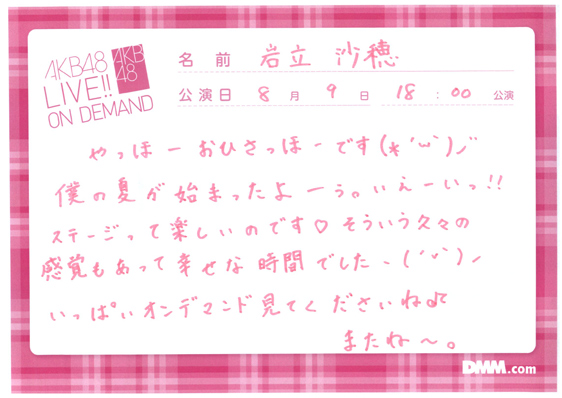 AKB48
LIVE!!
ON DEMAND
AKB
48
名前 岩立 沙穂
公演日 8月9日 18:00 公演
やっほーおひさっほーです(*´ω`)ノ
僕の夏が始まったよーぅ。いえーいっ!!
ステージって楽しいのです♡そういう久々の
感覚もあって幸せな時間でした、(´ᵕ`)ノ
いっぱいオンデマンド見てくださいね♪
またね〜。
DMM.com